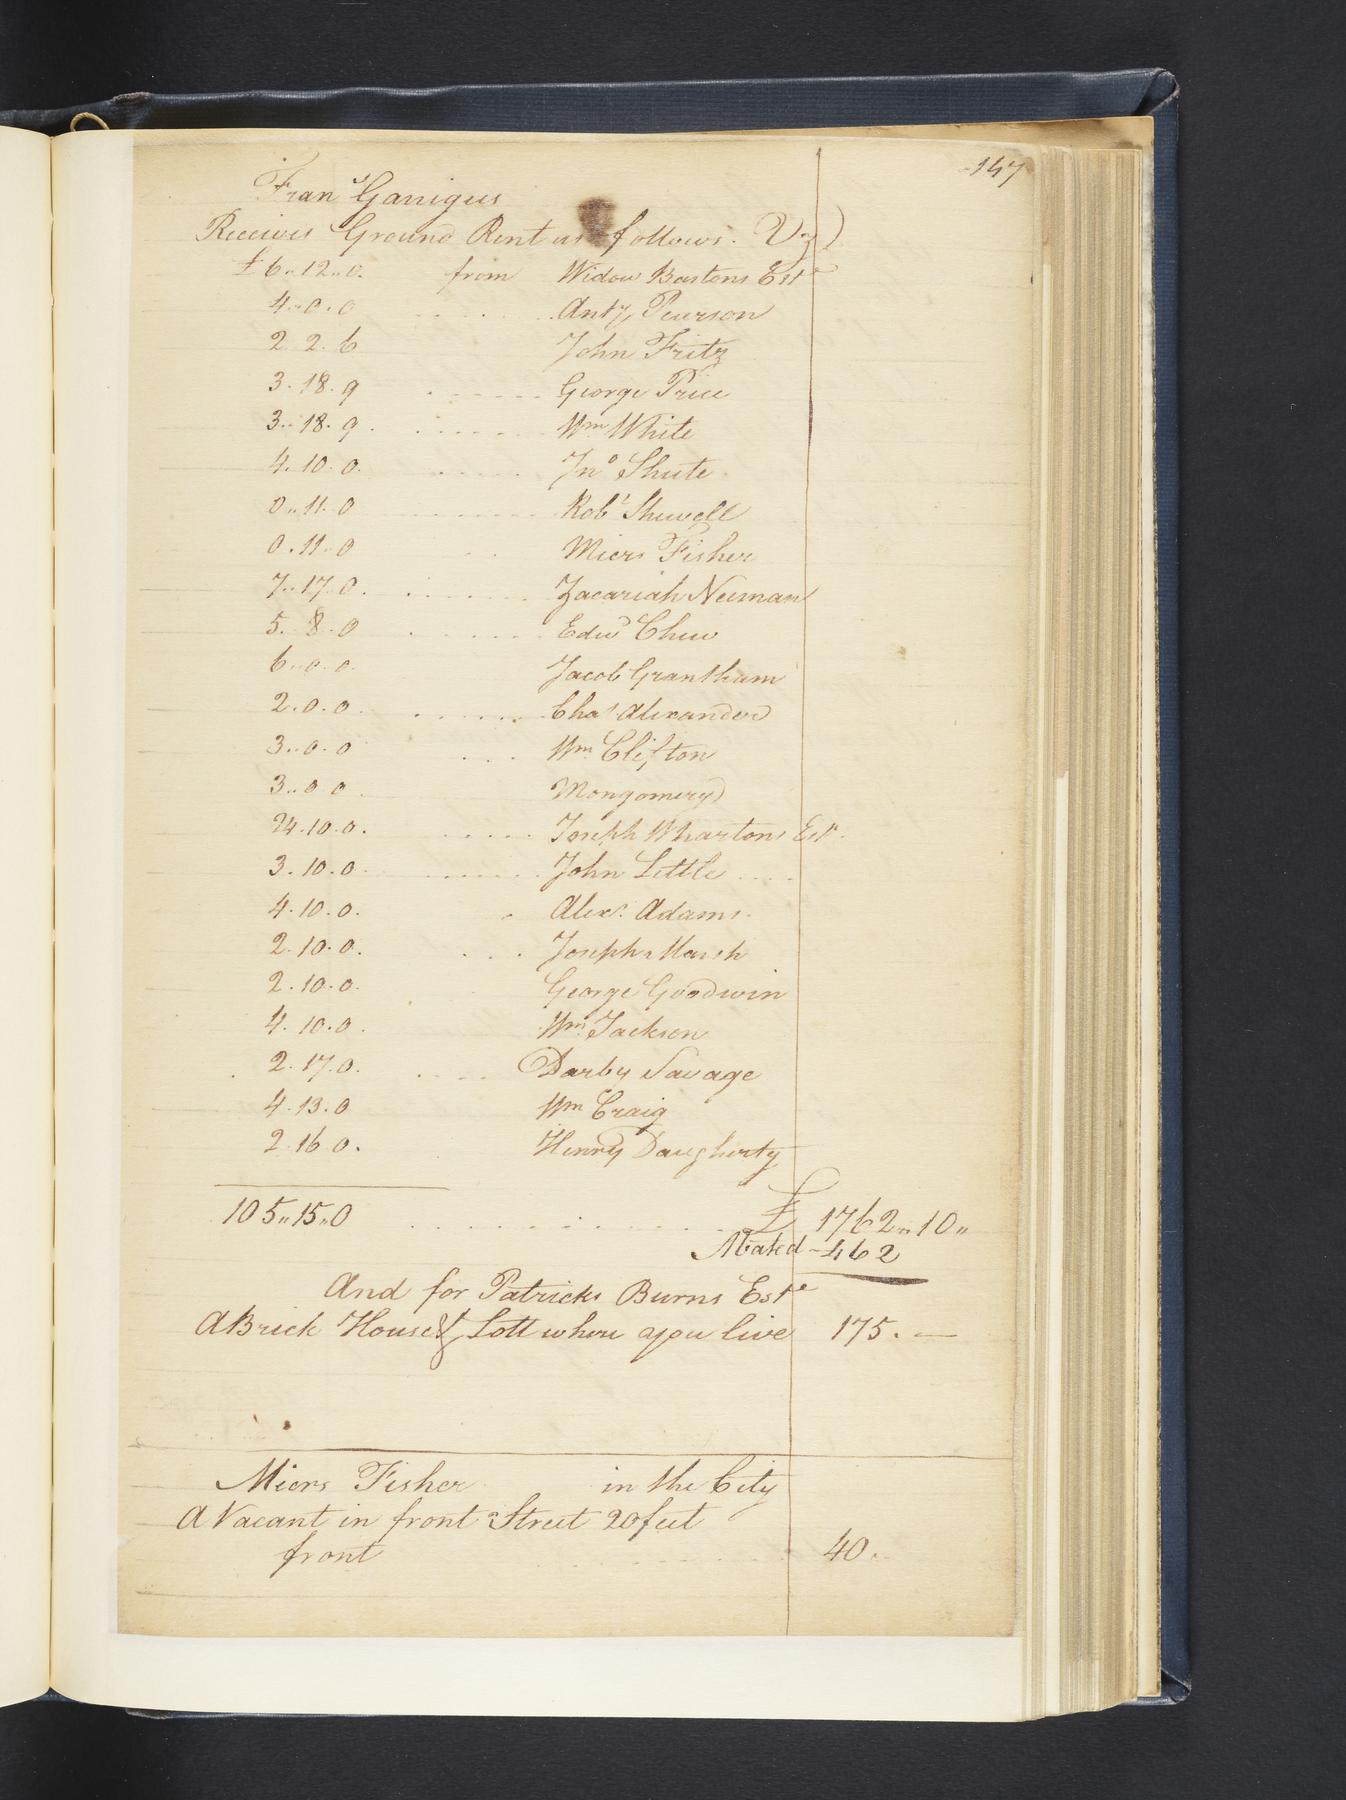 147
Frans Garrigues
Receives Ground Rent as follows. Viz)
£6..12..0. from Widow Bartons Este
4..0.0 ..... Anty Pearson
2. 2. 6 John Fritz
3. 18. 9 ...... George Price
3.. 18. 9. ....... Wm White
4. 10. 0. ..... Jno Shute
0.. 11. 0 ........ Robt Shewell
0. 11. 0 .. Miers Fisher
7.. 17. 0. ....... Zacariah Neeman
5. 8. 0 ...... Edwd Chew
6.. 0. 0. Jacob Grantham
2. 0. 0. ...... Chas Alexander
3.. 0. 0 ... Wm Clifton
3.. 0. 0. Montgomery
24. 10. 0. ..... Joseph Whartons Est.
3. 10. 0. ....... John Little ....
4. 10. 0. . Alexr. Adams.
2. 10. 0. ... Joseph Marsh
2. 10. 0. George Goodwin
4. 10. 0. Wm Jackson
2. 17. 0. .... Darby Savage
4. 13. 0 Wm Craig
2. 16 0. Henry Daugherty
105,,15,,0 .......... £ 1762,,10,,
Abated - 462
And for Patricks Burns Este
A Brick House & Lott where you live 175. —
Miers Fisher in the City
A Vacant in front Street 20 feet
front ....... 40.